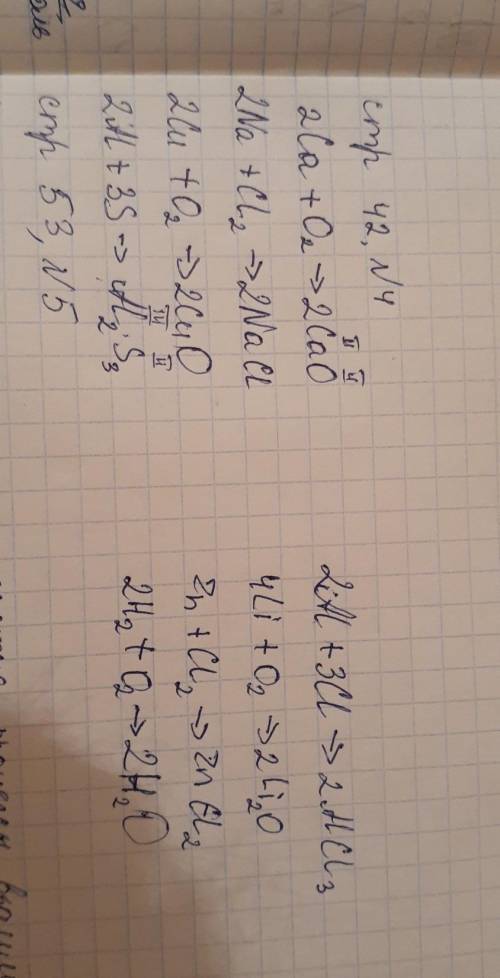 стр 42, №4
2Ca + O₂ → 2CaO
II II
2Na + Cl₂ → 2NaCl
2Cu + O₂ → 2CuO
III II
2Al + 3S → Al₂S₃
стр 53, №5
2Al + 3Cl → 2AlCl₃
4Li + O₂ → 2Li₂O
Zn + Cl₂ → ZnCl₂
2H₂ + O₂ → 2H₂O